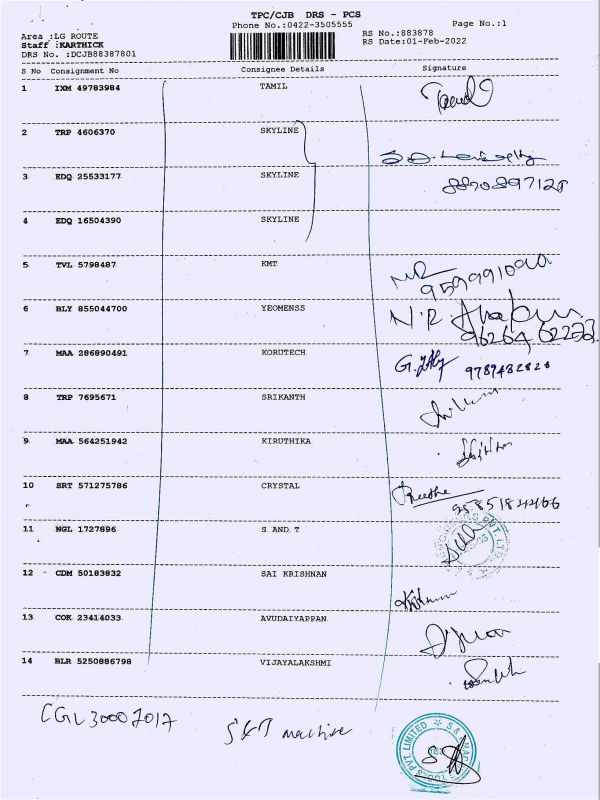 TPC/CJB DRS - PCS
Phone No.:0422-3505555
Page No.:1
Area :LG ROUTE
Staff :KARTHICK
DRS No. :DCJB88387801
RS No.:883878
RS Date:01-Feb-2022
S No Consignment No Consignee Details Signature
1 IXM 49783984 TAMIL
2 TRP 4606370 SKYLINE
3 EDQ 25533177 SKYLINE
4 EDQ 16504390 SKYLINE
5 TVL 5798487 KMT
6 BLY 855044700 YEOMENSS
7 MAA 286890491 KORUTECH 9789482828
8 TRP 7695671 SRIKANTH
9 MAA 564251942 KIRUTHIKA
10 SRT 571275786 CRYSTAL
11 NGL 1727896 S. AND. T
12 CDM 50183832 SAI KRISHNAN
13 COK 23414033 AVUDAIYAPPAN
14 BLR 5250886798 VIJAYALAKSHMI
CGL30007017 S&T machine